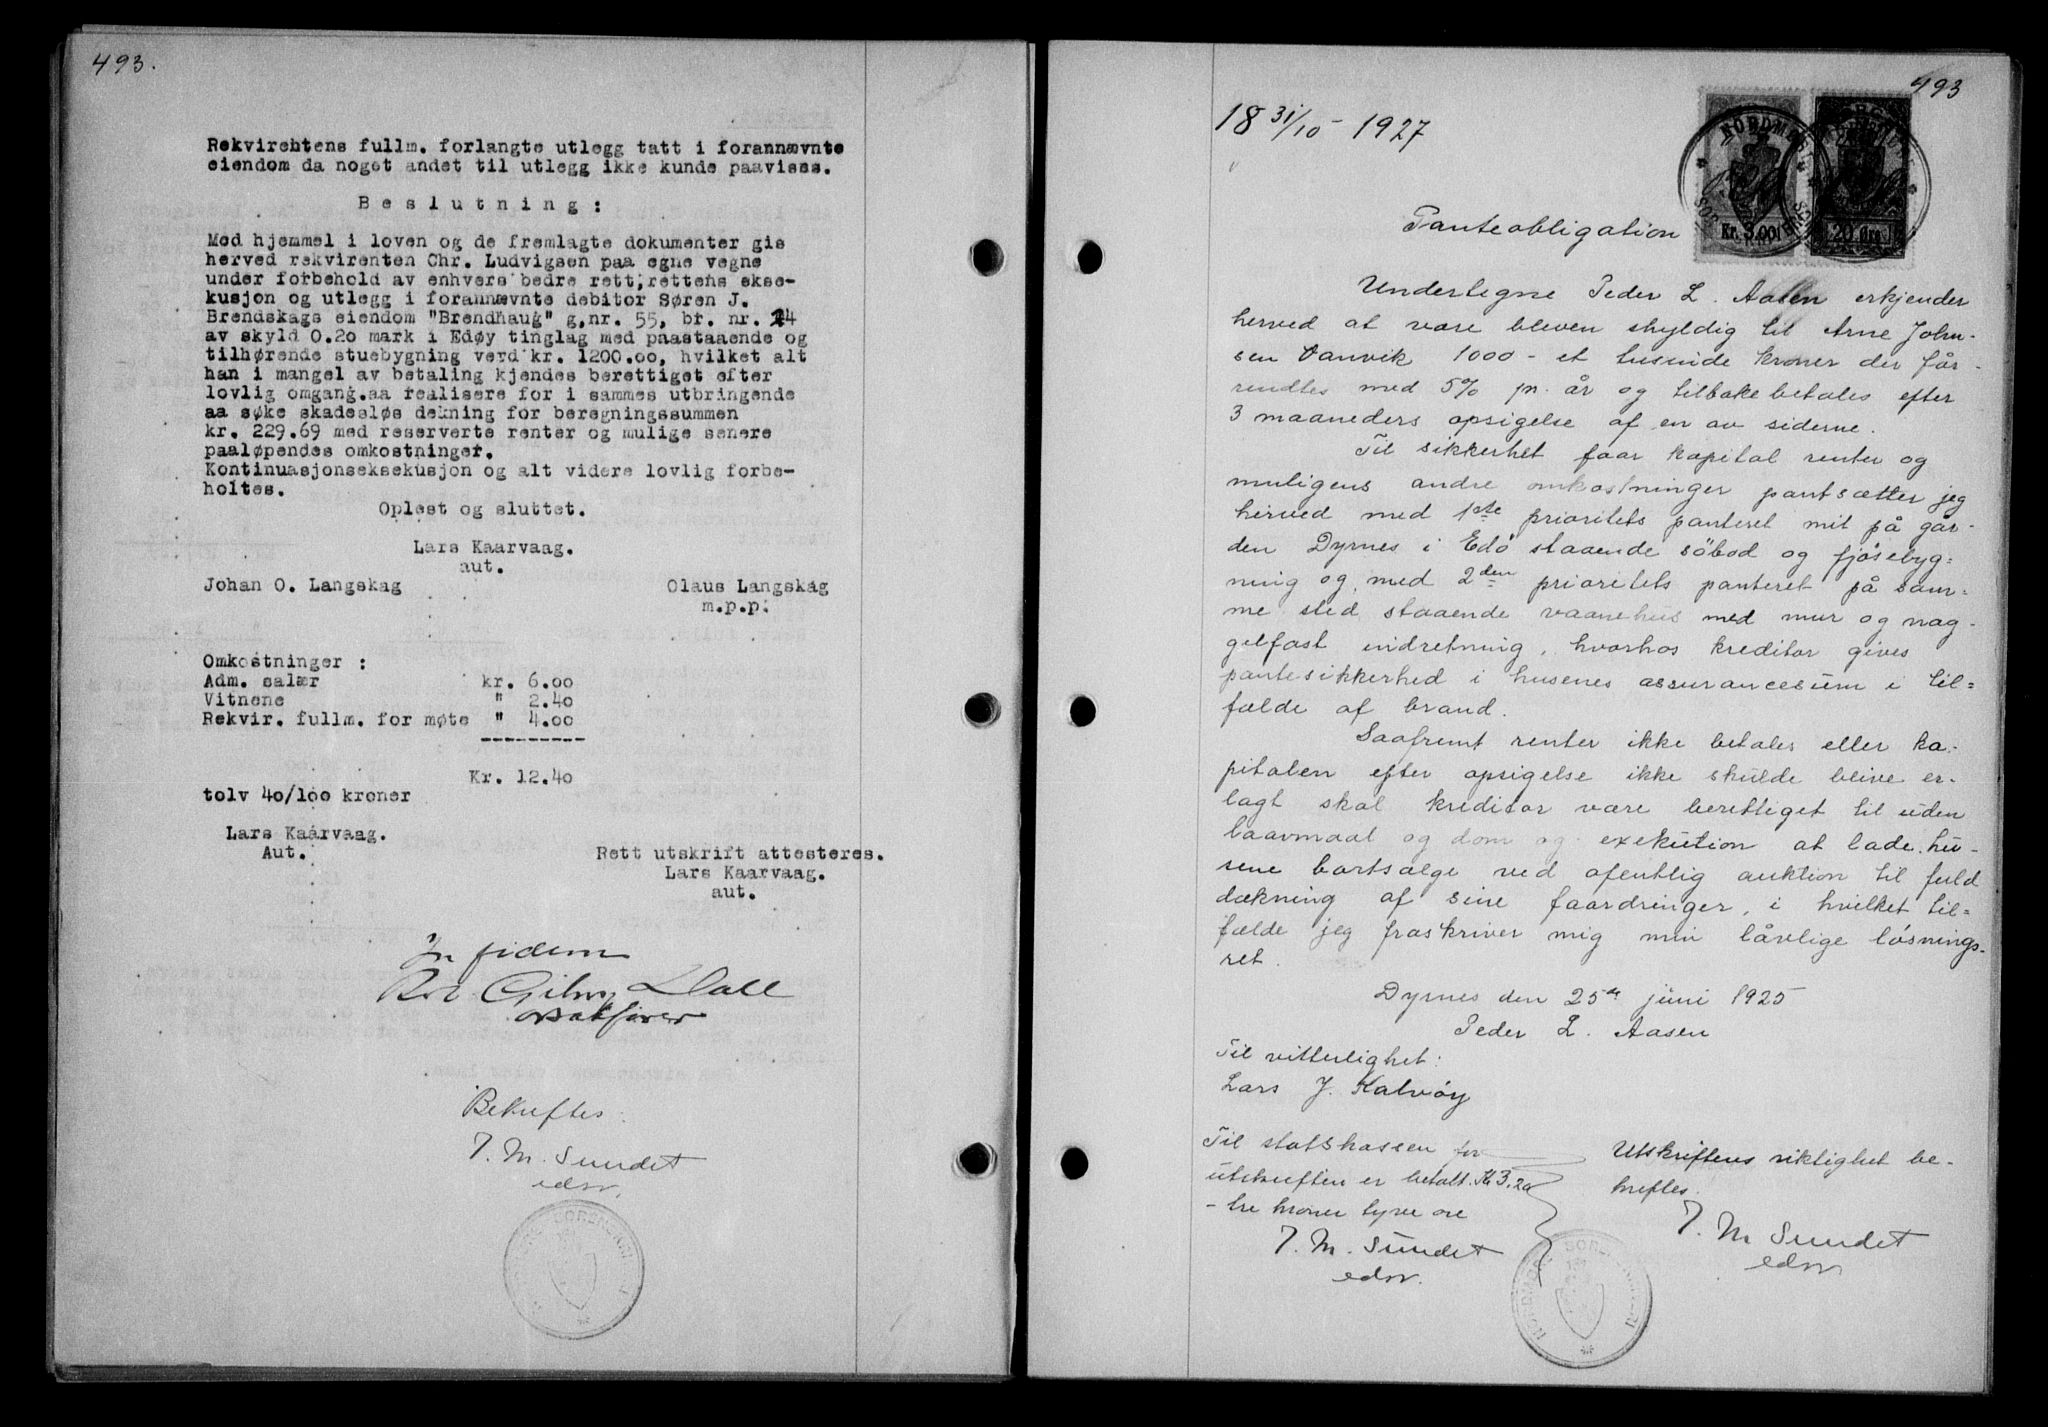 493.
Rekvirentens fullm. forlangte utlegg tatt i forannævnte
eiendom da noget andet til utlegg ikke kunde paavises.
Beslutning:
Med hjemmel i loven og de fremlagte dokumenter gis
herved rekvirenten Chr. Ludvigsen paa egne vegne
under forbehold av enhvers bedre rett, rettens ekse-
kusjon og utlegg i forannævnte debitor Søren J.
Brendskags eiendom "Brendhaug" g.nr. 55, br. nr. 24
av skyld 0.20 mark i Edøy tinglag med paastaaende og
tilhørende stuebygning verd kr. 1200.00, hvilket alt
han i mangel av betaling kjendes berettiget efter
lovlig omgang.aa realisere for i sammes utbringende
aa søke skadesløs dekning for beregningssummen
kr. 229.69 med reserverte renter og mulige senere
paaløpendes omkostninger.
Kontinuasjonseksekusjon og alt videre lovlig forbe-
holtes.
Oplest og sluttet.
Lars Kaarvaag.
aut.
Johan O. Langskag Olaus Langskag
m.p.p.
Omkostninger :
Adm. salær kr. 6.00
Vitnene " 2.40
Rekvir. fullm. for møte " 4.00
Kr. 12.40
tolv 40/100 kroner
Lars Kaarvaag.
Aut.
Rett utskrift attesteres.
Lars Kaarvaag.
aut.
In fidem
Dall
Bekreftes:
T. M. Sundet
edsv.
493
18 31/10 - 1927
NORDMØRE
Kr. 3.00
20 Øre
Panteobligation
Undertegne Peder L. Aasen erkjender
herved at være bleven skyldig til Arne John-
sen Vanvik 1000 - et tusinde kroner der får-
rendtes med 5% pr. år og tilbakebetales efter
3 maaneders opsigelse af en av siderne.
Til sikkerhet faar kapital renter og
muligens andre omkostninger pantsætter jeg
herved med 1ste prioritets panteret mit på går-
den Dyrnes i Edö staaende söbod og fjösebyg=
ning og, med 2den prioritets panteret på sam=
me sted staaende vaanehus med mur og nag-
gelfast indretning, hvorhos kreditor gives
pantesikkerhed i husenes assurancesum i til=
fælde af brand.
Saafremt renter ikke betales eller ka-
pitalen efter opsigelse ikke skulde blive er-
lagt skal kreditor være berettiget til uden
laavmaal og dom og exekution at lade hu-
sene bortsælge ved ofentlig auktion til fuld
dækning af sine faardringer, i hvilket til=
fælde jeg fraskriver mig min lårlige løsnings-
ret.
Dyrnes den 25de juni 1925
Peder L. Aasen
Til vitterlighet:
Lars J. Kalvöy
Til statskassen for
utskriften er betalt Kr 3,20
- tre kroner tyve øre
T. M. Sundet
edsv.
Utskriftens riktighet be-
kreftes.
T. M. Sundet
edsv.